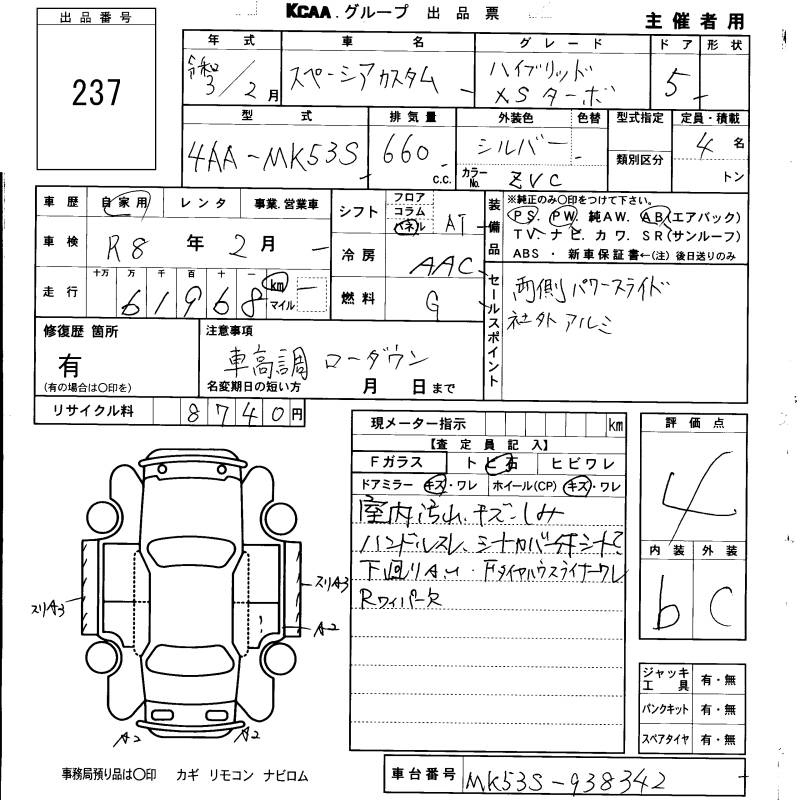 KCAA グループ 出品票
主催者用
出品番号
237
年式 車名 グレード ドア 形状
令和 3/2月 スペーシアカスタム ハイブリッド XSターボ 5
型式 排気量 外装色 色替 型式指定 定員・積載
4AA-MK53S 660 c.c. シルバー 4名
カラーNo. ZVC 類別区分 トン
車歴 自家用 レンタ 事業.営業車
車検 R8年 2月
走行 十万 万 千 百 十 一
61968 km マイル
シフト フロア コラム パネル AT
冷房 AAC
燃料 G
装備品 ※純正のみ〇印をつけて下さい.
PS. PW. 純AW. AB(エアバック)
TV. ナビ. カワ. SR(サンルーフ)
ABS ・ 新車保証書←(注) 後日送りのみ
セールスポイント
両側パワースライド
社外アルミ
修復歴 箇所
有
(有の場合は〇印を)
注意事項
車高調 ローダウン
名変期日の短い方 月 日まで
リサイクル料 8740円
現メーター指示 km
【査定員記入】
Fガラス ト ビ石 ヒビワレ
ドアミラー キズ・ワレ ホイール(CP) キズ・ワレ
室内汚れ、キズ・しみ
ハンドルスレ、シートカバー
下回りサビ・Fタイヤハウスライナーワレ
Rワイパー欠
評価点
4
内装 外装
b C
スリA3
スリA3
A2
A2 A2
ジャッキ工具 有・無
パンクキット 有・無
スペアタイヤ 有・無
事務局預り品は〇印 カギ リモコン ナビロム
車台番号 MK53S-938342